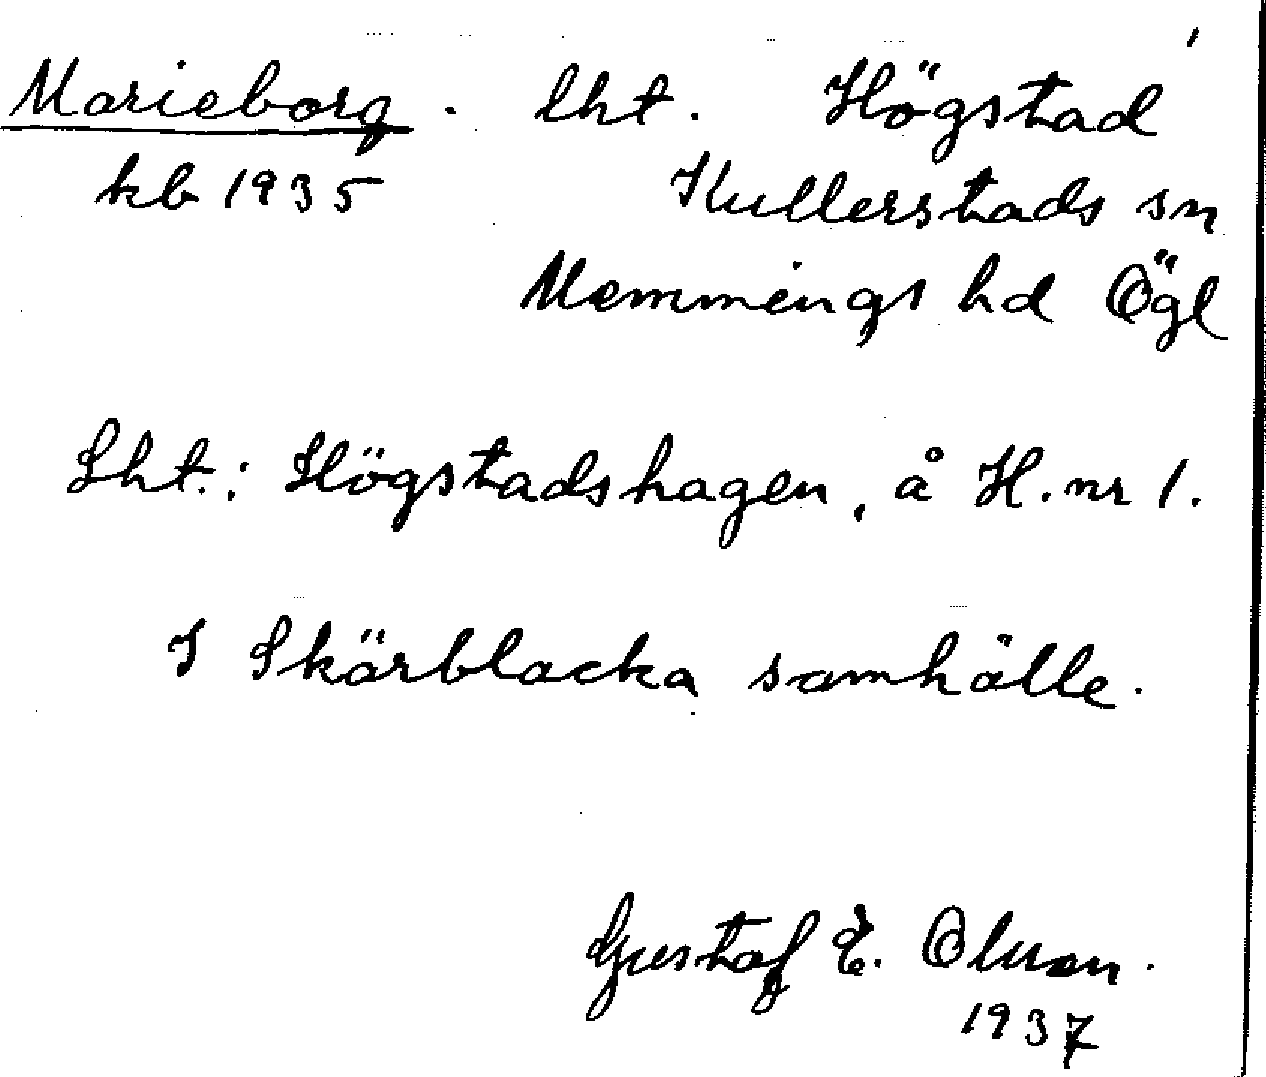 Marieborg. lht. Högstad
kb 1935 Kullerstads sn
Memmings hd Ögl
Lht.: Högstadshagen, å H. nr 1.
I Skärblacka samhälle.
Gustaf E. Olsson.
1937